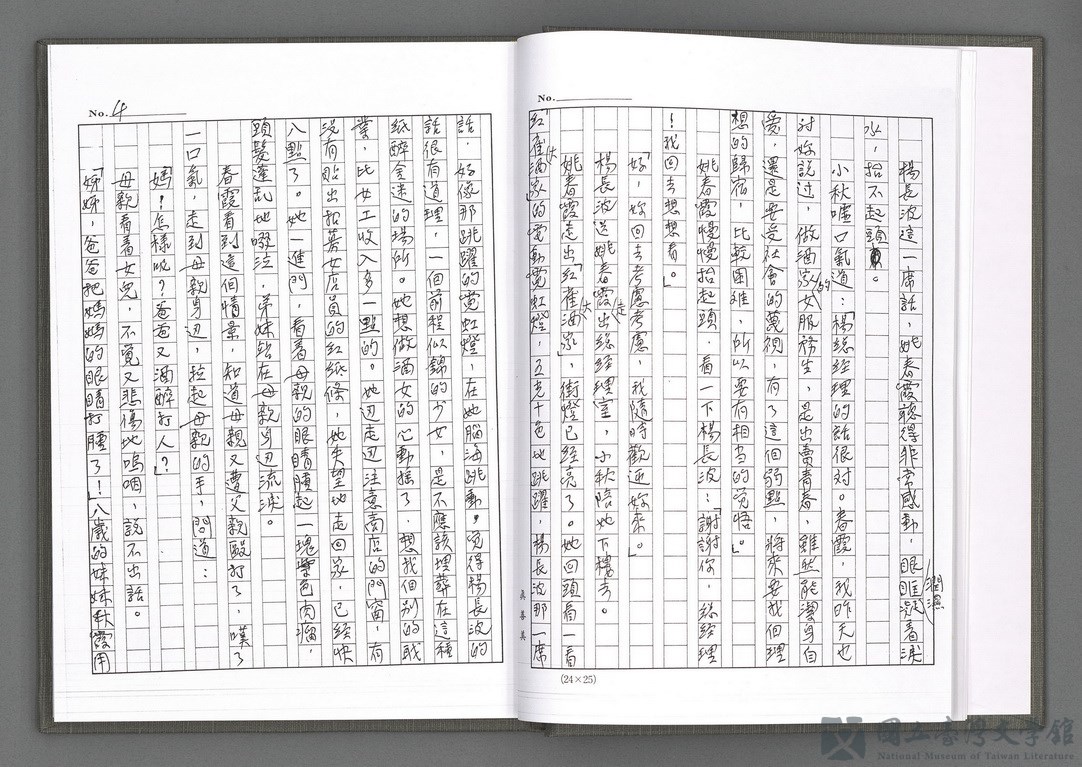 No.
楊長波這一席話，姚春霞聽得非常感動，眼眶凝着淚
潤濕
水，抬不起頭。
小秋噓口氣道：「楊總經理的話很對。春霞，我昨天也
對妳說過，做酒家女的服務生，是出賣青春，雖然能潔身自
愛，還是要受社會的蔑視，有了這個弱點，將來要找個理
想的歸宿，比較困難，所以要有相當的覺悟。」
姚春霞慢慢抬起頭，看一下楊長波：「謝謝你，總經理
！我回去想想看。」
「好，妳回去考慮考慮，我隨時歡迎妳來。」
楊長波送姚春霞走出總經理室，小秋陪她下樓去。
姚春霞走出「紅雀大酒家」，街燈已經亮了。她回頭看一看
「紅雀大酒家」的電動霓虹燈，五光十色地跳躍，楊長波那一席
真善美
(24×25)
No. 4
話，好像那跳躍的霓虹燈，在她腦海跳動。覺得楊長波的
話很有道理，一個前程似錦的少女，是不應該埋葬在這種
紙醉金迷的場所。她想做酒女的心動搖了，想找個別的職
業，比女工收入多一點的。她边走边注意商店的門窗，有
沒有貼出招募女店員的紅紙條，她失望地走回家，已經快
八點了。她一進門，看着母親的眼睛腫起一塊紫色肉瘤，
頭髮蓬乱地啜泣，弟妹站在母親身边流淚。
春霞看到這個情景，知道母親又遭父親毆打了，嘆了
一口氣，走到母親身边，拉起母親的手，問道：
「媽？怎樣呢？爸爸又酒醉打人？」
母親看着女兒，不覺又悲傷地嗚咽，說不出話。
「姊姊，爸爸把媽媽的眼睛打腫了！」八歲的妹妹秋霞用
國立臺灣文學館
National Museum of Taiwan Literature